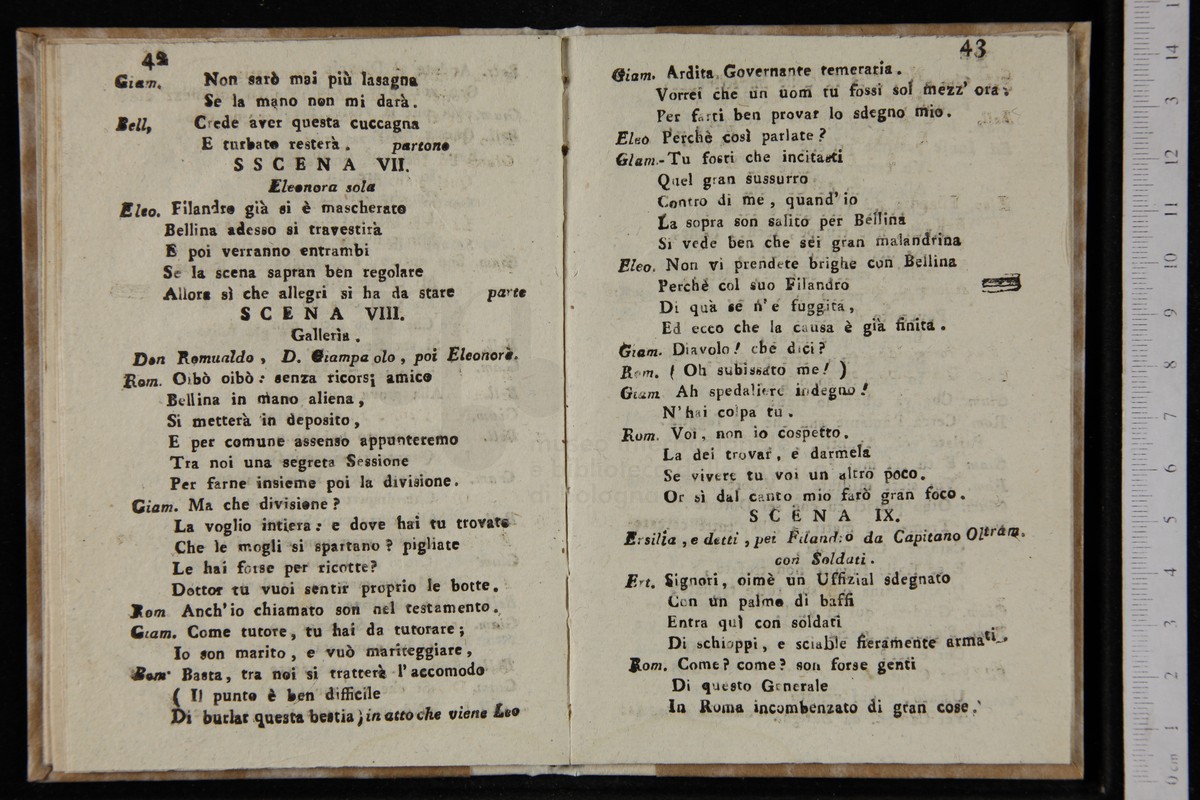 42
Giam. Non sarò mai più lasagna
Se la mano non mi darà.
Bell, Crede aver questa cuccagna
E turbato resterà. partono
S SCENA VII.
Eleonora sola
Eleo. Filandro già si è mascherato
Bellina adesso si travestirà
E poi verranno entrambi
Se la scena sapran ben regolare
Allora sì che allegri si ha da stare parte
SCENA VIII.
Gallerìa.
Don Romualdo, D. Giampaolo, poi Eleonora.
Rom. Oibò oibò: senza ricorsi amico
Bellina in mano aliena,
Si metterà in deposito,
E per comune assenso appunteremo
Tra noi una segreta Sessione
Per farne insieme poi la divisione.
Giam. Ma che divisione?
La voglio intiera: e dove hai tu trovato
Che le mogli si spartano? pigliate
Le hai forse per ricotte?
Dottor tu vuoi sentir proprio le botte.
Rom Anch'io chiamato son nel testamento.
Giam. Come tutore, tu hai da tutorare;
Io son marito, e vuò mariteggiare,
Rom. Basta, tra noi si tratterà l'accomodo
( Il punto è ben difficile
Di burlar questa bestia) in atto che viene Leo
43
Giam. Ardita Governante temeraria.
Vorrei che un uom tu fossi sol mezz' ora;
Per farti ben provar lo sdegno mio.
Eleo Perchè così parlate?
Giam.-Tu fosti che incitasti
Quel gran sussurro
Contro di me, quand' io
La sopra son salito per Bellina
Si vede ben che sei gran malandrina
Eleo. Non vi prendete brighe con Bellina
Perchè col suo Filandro
Di quà se n'è fuggita,
Ed ecco che la causa è già finita.
Giam. Diavolo! che dici?
Rom. ( Oh subissato me! )
Giam Ah spedaliere indegno!
N'hai colpa tu.
Rom. Voi, non io cospetto.
La dei trovar, e darmela
Se vivere tu voi un altro poco.
Or sì dal canto mio farò gran foco.
SCENA IX.
Ersilia, e detti, poi Filandro da Capitano Oltram.
con Soldati.
Ert. Signori, oimè un Uffizial sdegnato
Con un palmo di baffi
Entra quì con soldati
Di schioppi, e sciable fieramente armati.
Rom. Come? come? son forse genti
Di questo Generale
In Roma incombenzato di gran cose.